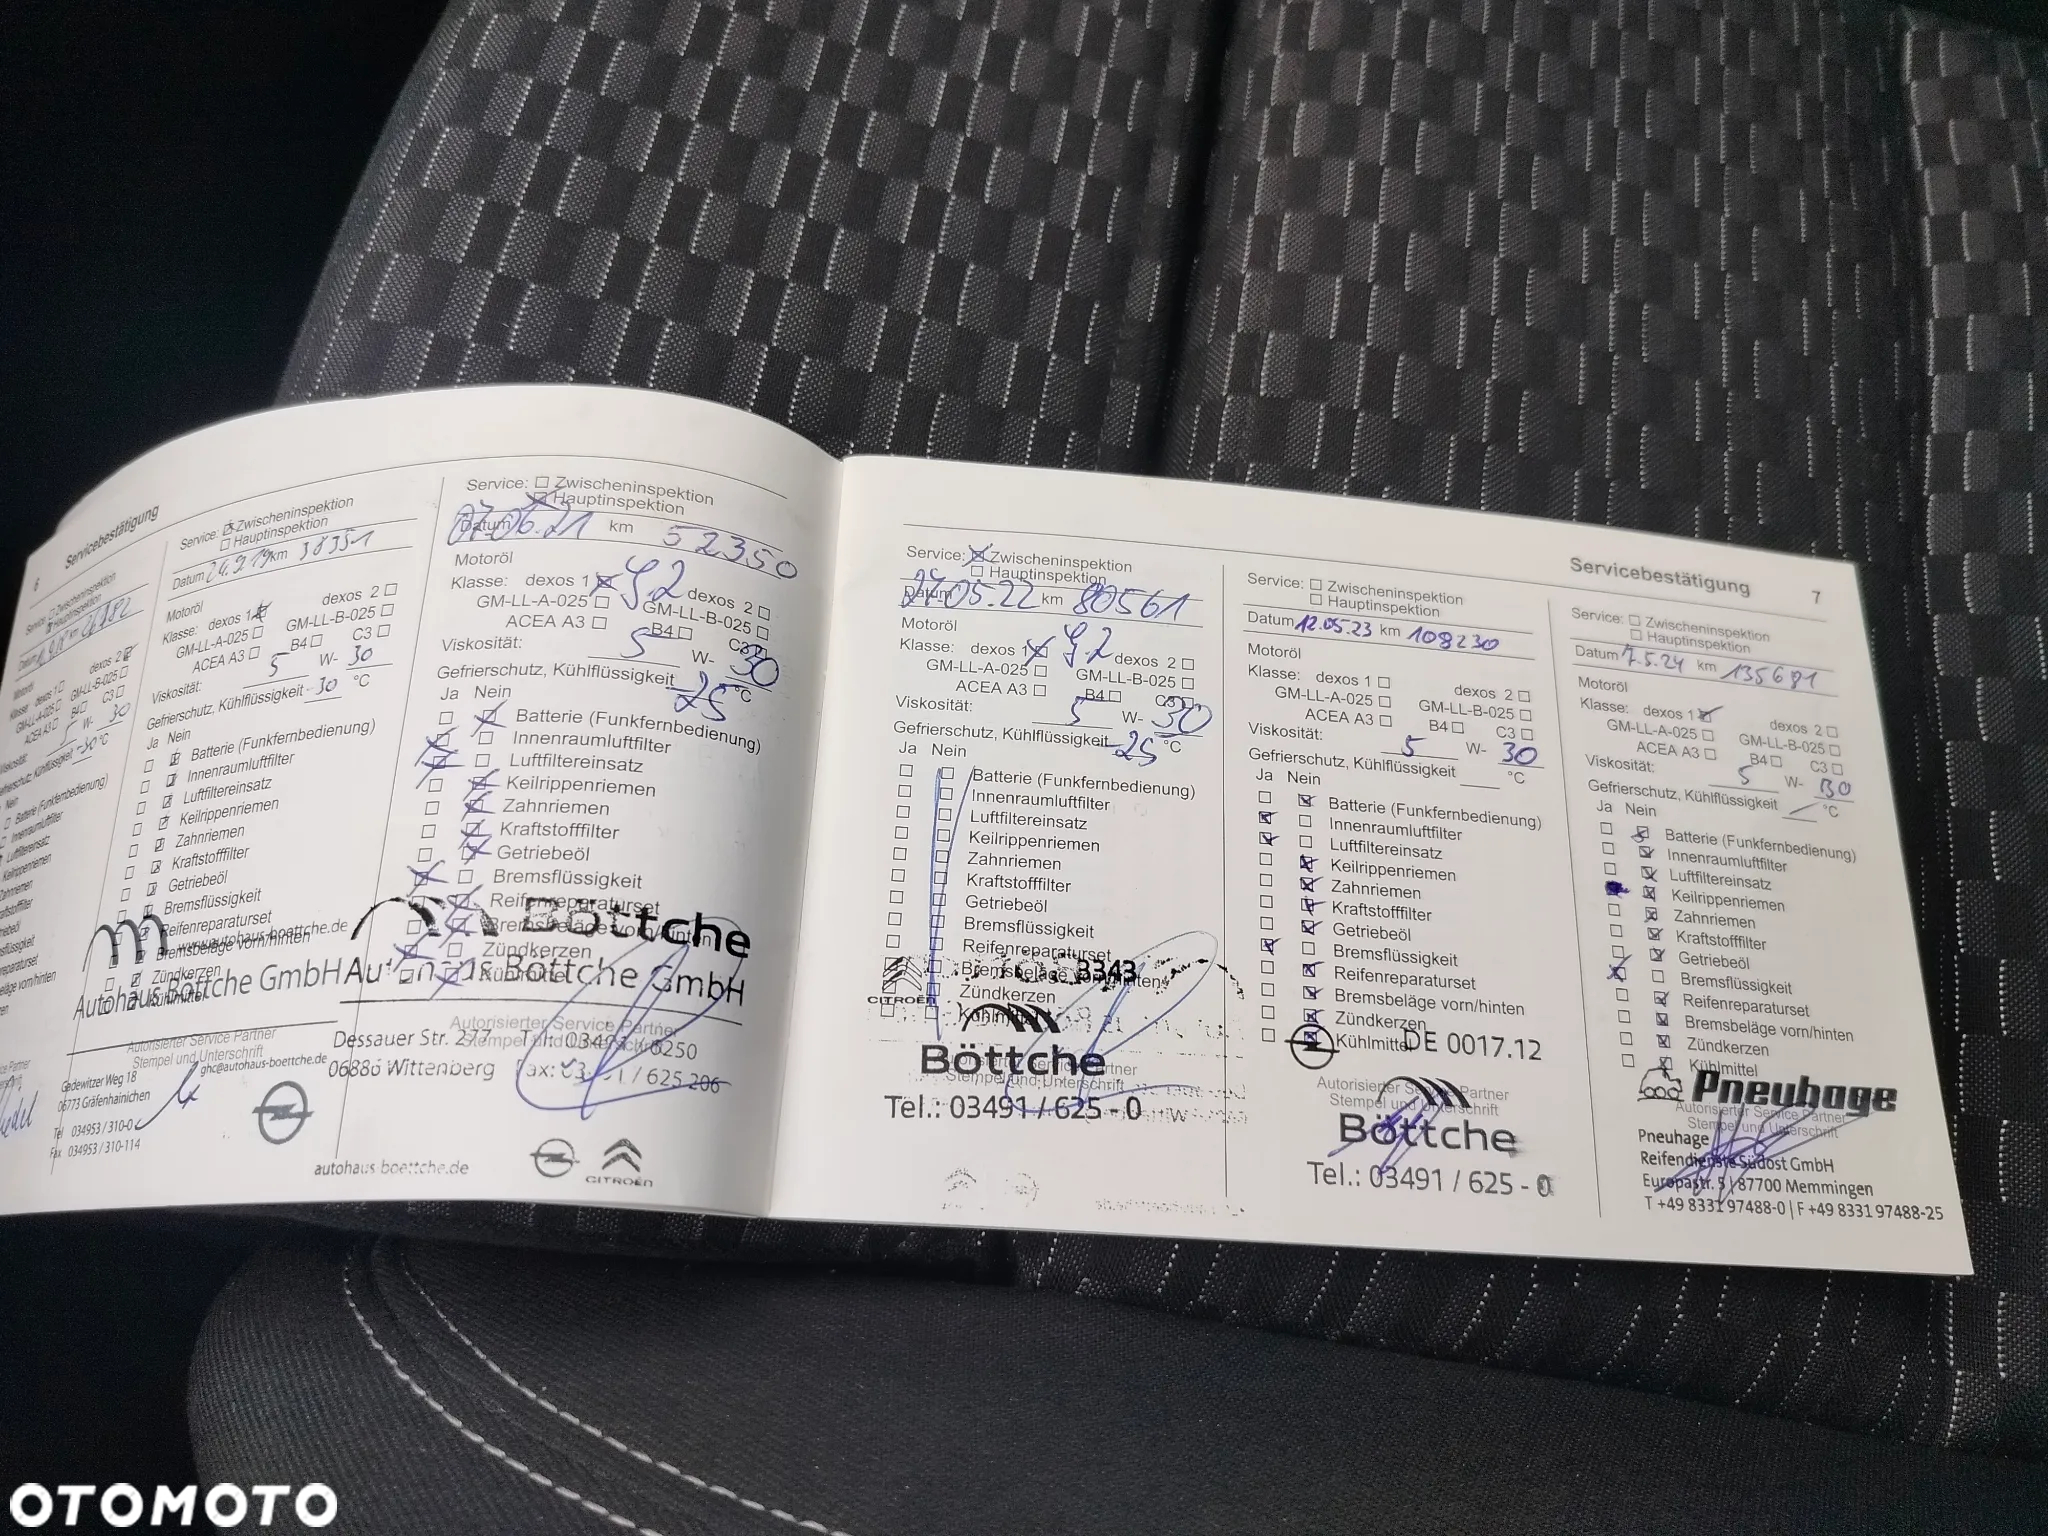 6 Servicebestätigung
Service: Zwischeninspektion
Hauptinspektion
Datum km
dexos 2
dexos 1
GM-LL-B-025
GM-LL-A-025
ACEA A3 B4 C3
5 W- 30
-30 °C
Nein
Batterie (Funkfernbedienung)
Service: Zwischeninspektion
Hauptinspektion
Datum 24.9.19 km 38351
Motoröl
Klasse: dexos 1 dexos 2
GM-LL-A-025 GM-LL-B-025
ACEA A3 B4 C3
Viskosität: 5 W- 30
Gefrierschutz, Kühlflüssigkeit -30 °C
Ja Nein
Batterie (Funkfernbedienung)
Innenraumluftfilter
Luftfiltereinsatz
Keilrippenriemen
Zahnriemen
Kraftstofffilter
Getriebeöl
Bremsflüssigkeit
Reifenreparaturset
Bremsbeläge vorn/hinten
Zündkerzen
Kühlmittel
www.autohaus-boettche.de
Autohaus Böttche GmbH
Autorisierter Service Partner
Stempel und Unterschrift
Gadewitzer Weg 18
06773 Gräfenhainichen
ghc@autohaus-boettche.de
Tel 034953 / 310-0
Fax 034953 / 310-114
Service: Zwischeninspektion
Hauptinspektion
Datum 07.06.21 km 52350
Motoröl
Klasse: dexos 1 G2 dexos 2
GM-LL-A-025 GM-LL-B-025
ACEA A3 B4 C3
Viskosität: 5 W- 30
Gefrierschutz, Kühlflüssigkeit -25 °C
Ja Nein
Batterie (Funkfernbedienung)
Innenraumluftfilter
Luftfiltereinsatz
Keilrippenriemen
Zahnriemen
Kraftstofffilter
Getriebeöl
Bremsflüssigkeit
Reifenreparaturset
Bremsbeläge vorn/hinten
Zündkerzen
Kühlmittel
Böttche
Autohaus Böttche GmbH
Autorisierter Service Partner
Stempel und Unterschrift
Dessauer Str.
06886 Wittenberg
/ 625 206
autohaus-boettche.de
CITROËN
Servicebestätigung 7
Service: Zwischeninspektion
Hauptinspektion
Datum 27.05.22 km 80561
Motoröl
Klasse: dexos 1 G2 dexos 2
GM-LL-A-025 GM-LL-B-025
ACEA A3 B4 C3
Viskosität: 5 W- 30
Gefrierschutz, Kühlflüssigkeit -25 °C
Ja Nein
Batterie (Funkfernbedienung)
Innenraumluftfilter
Luftfiltereinsatz
Keilrippenriemen
Zahnriemen
Kraftstofffilter
Getriebeöl
Bremsflüssigkeit
Reifenreparaturset
Bremsbeläge vorn/hinten
Zündkerzen
Kühlmittel
CITROËN
3343
Böttche
Stempel und Unterschrift
Tel.: 03491 / 625 - 0
Service: Zwischeninspektion
Hauptinspektion
Datum 12.05.23 km 108230
Motoröl
Klasse: dexos 1 dexos 2
GM-LL-A-025 GM-LL-B-025
ACEA A3 B4 C3
Viskosität: 5 W- 30
Gefrierschutz, Kühlflüssigkeit °C
Ja Nein
Batterie (Funkfernbedienung)
Innenraumluftfilter
Luftfiltereinsatz
Keilrippenriemen
Zahnriemen
Kraftstofffilter
Getriebeöl
Bremsflüssigkeit
Reifenreparaturset
Bremsbeläge vorn/hinten
Zündkerzen
Kühlmittel
DE 0017.12
Autorisierter Service Partner
Stempel und Unterschrift
Böttche
Tel.: 03491 / 625 - 0
Service: Zwischeninspektion
Hauptinspektion
Datum 7.5.24 km 135681
Motoröl
Klasse: dexos 1 dexos 2
GM-LL-A-025 GM-LL-B-025
ACEA A3 B4 C3
Viskosität: 5 W- 30
Gefrierschutz, Kühlflüssigkeit / °C
Ja Nein
Batterie (Funkfernbedienung)
Innenraumluftfilter
Luftfiltereinsatz
Keilrippenriemen
Zahnriemen
Kraftstofffilter
Getriebeöl
Bremsflüssigkeit
Reifenreparaturset
Bremsbeläge vorn/hinten
Zündkerzen
Kühlmittel
Pneuhage
Autorisierter Service Partner
Stempel und Unterschrift
Pneuhage
Reifendienste Südost GmbH
Europastr. 5 | 87700 Memmingen
T +49 8331 97488-0 | F +49 8331 97488-25
OTOMOTO